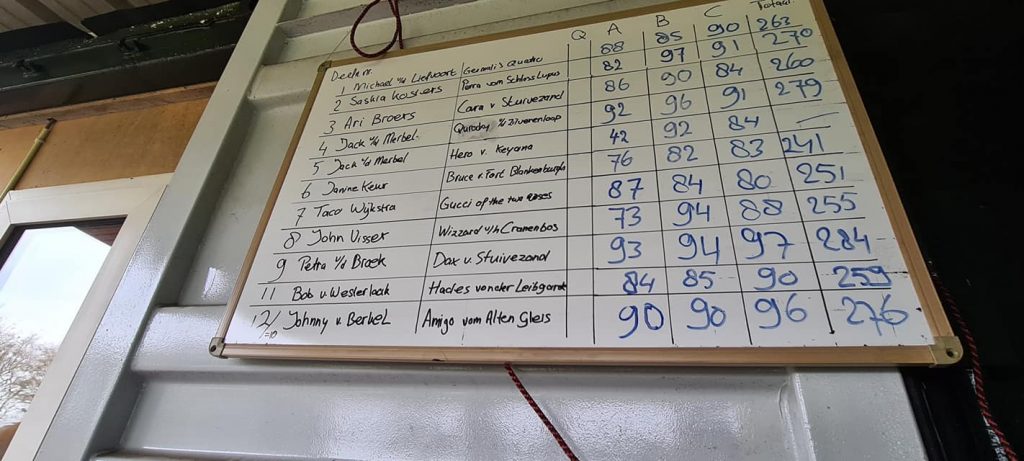 Deelnr. Q A B C Totaal
1 Michael v/d Liefvoort 88 85 90 263
2 Saskia Kosters Parra vom Schloss Lupus 82 97 91 270
3 Ari Broers Cara v Stuivezand 86 90 84 260
4 Jack v/d Merbel 92 96 91 279
5 Jack v/d Merbel Hero v. Keyana 42 92 84 —
6 Janine Keur Bruce v Fort Blankenburgh 76 82 83 241
7 Taco Wijkstra Gucci of the two roses 87 84 80 251
8 John Visser Wizzard v/h Cranenbos 73 94 88 255
9 Petra v/d Broek Dax v. Stuivezand 93 94 97 284
11 Bob v. Westerlaak Hades vonder 84 85 90 259
12/ Johnny v. Berkel Amigo vom Alten Gleis 90 90 96 276
=10